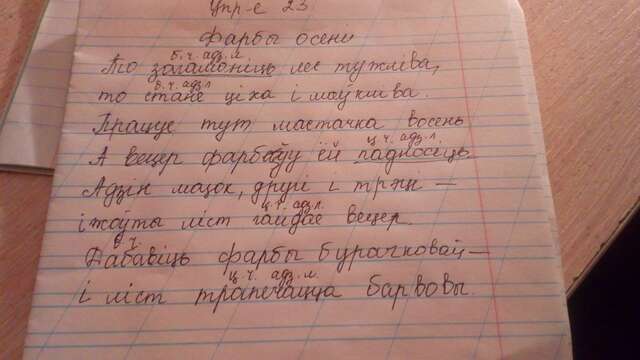 Упр-е 23
Фарбы осени
б.ч. адз.л.
То загамоніць лес тужліва,
б.ч. адз.л
то стане ціха і маўкліва.
Працуе тут мастачка восень
ц.ч. адз.л.
А вецер фарбаўу ёй падносіць
Адзін мазок, другі і трэці —
ц.ч. адз.л.
і жоўты ліст гайдае вецер.
б.ч.
Дабавіць фарбы бурачковай —
ц.ч. адз.л.
і ліст трапечацца барвовы.